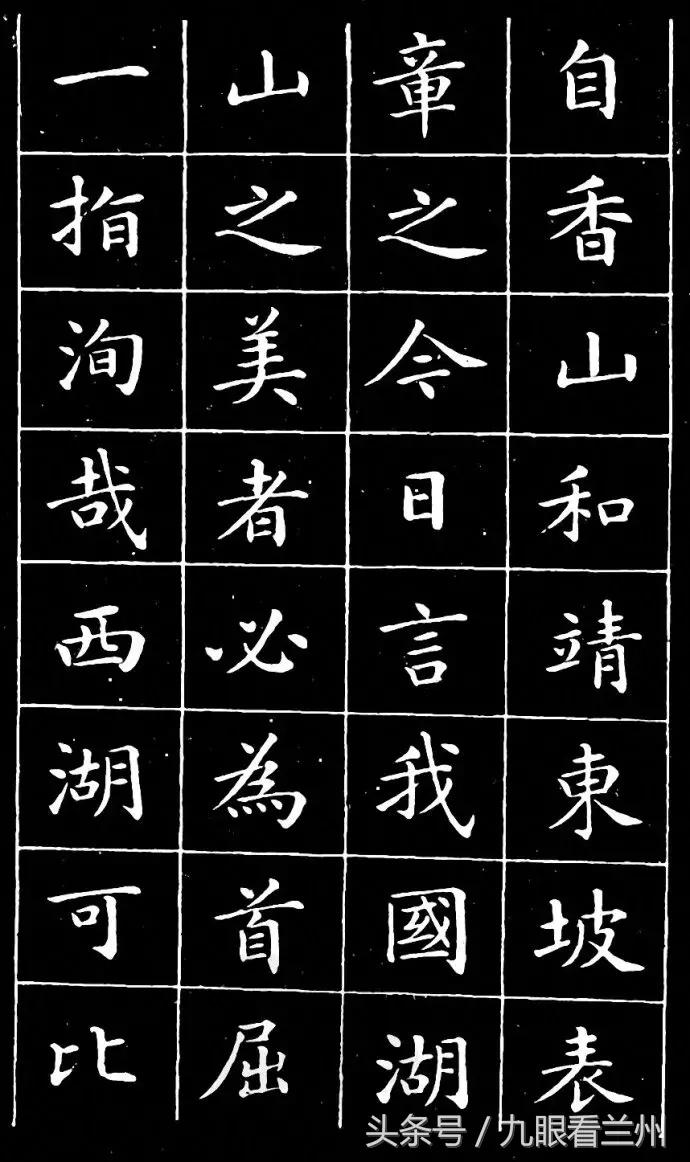 自香山和靖東坡表
章之今日言我國湖
山之美者必為首屈
一指洵哉西湖可比
头条号 / 九眼看兰州